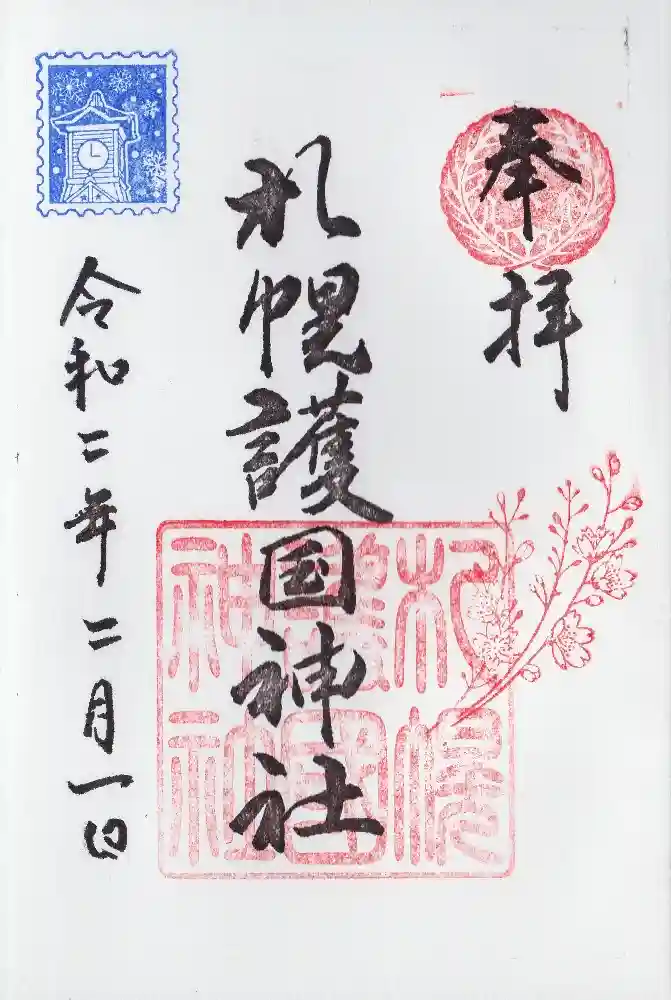 奉拝
札幌護国神社
令和二年二月一日
札幌
護國
神社